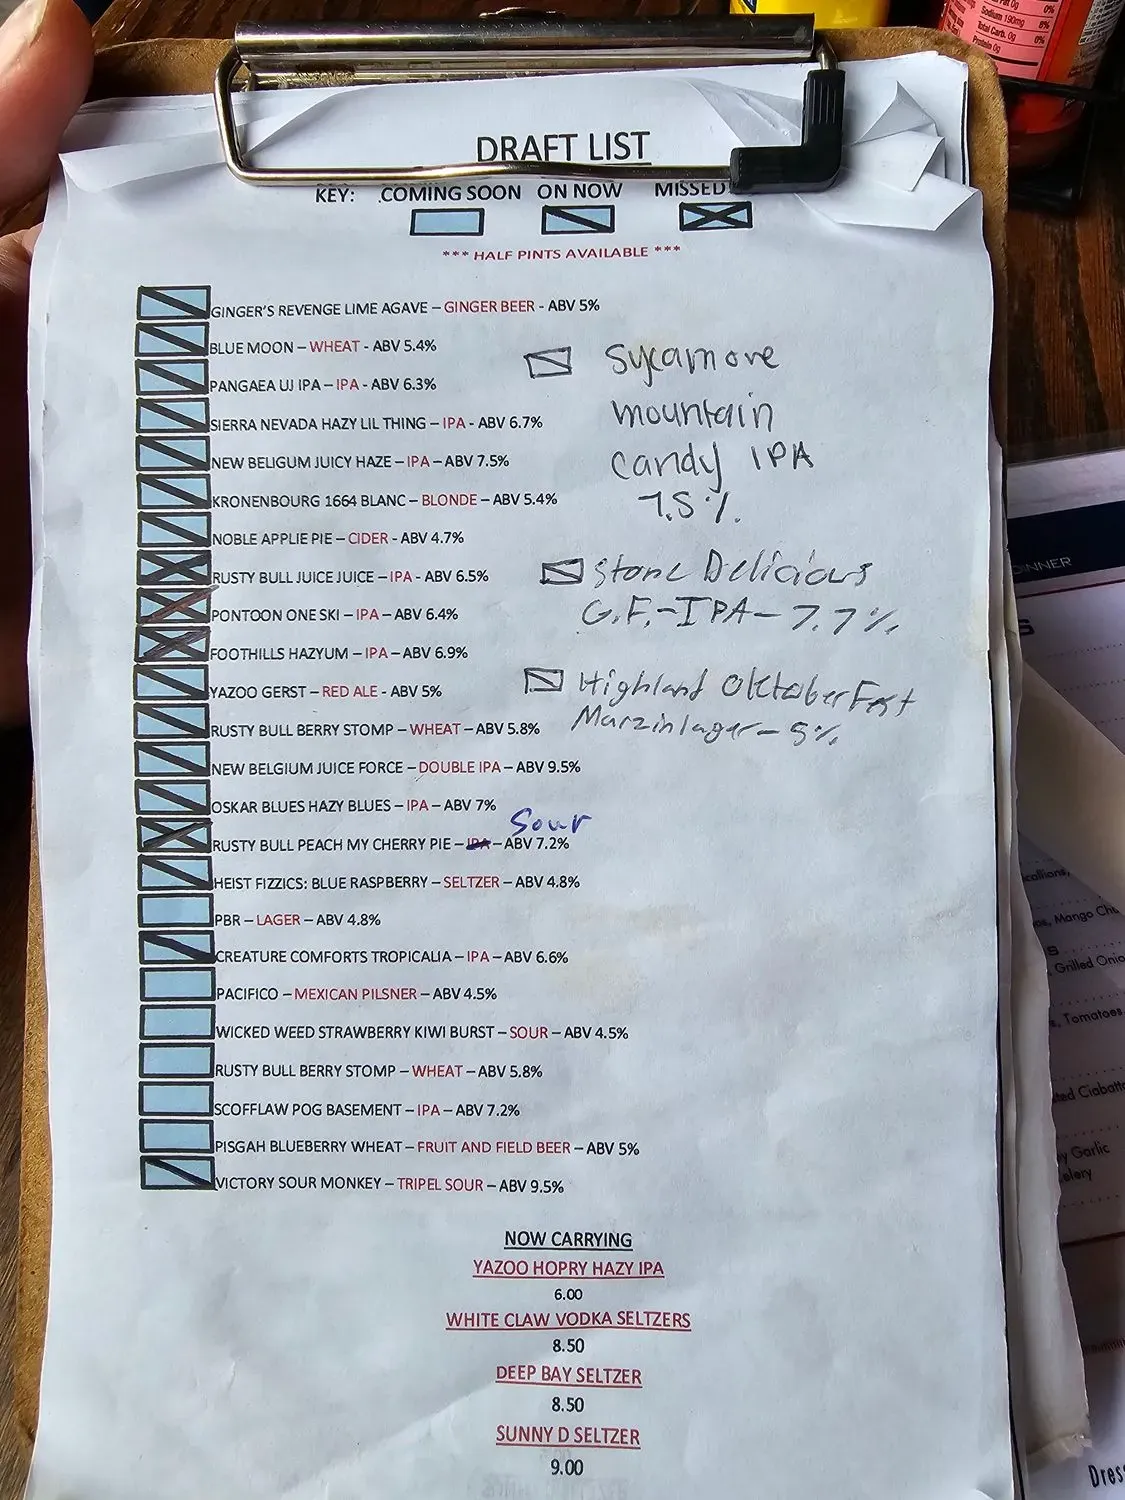 Fat 0g 0%
Sodium 190mg 8%
Total Carb. 0g 0%
Protein 0g
DRAFT LIST
KEY: COMING SOON ON NOW MISSED
*** HALF PINTS AVAILABLE ***
GINGER'S REVENGE LIME AGAVE – GINGER BEER - ABV 5%
BLUE MOON – WHEAT - ABV 5.4%
PANGAEA UJ IPA – IPA - ABV 6.3%
SIERRA NEVADA HAZY LIL THING – IPA - ABV 6.7%
NEW BELIGUM JUICY HAZE – IPA – ABV 7.5%
KRONENBOURG 1664 BLANC – BLONDE – ABV 5.4%
NOBLE APPLIE PIE – CIDER - ABV 4.7%
RUSTY BULL JUICE JUICE – IPA - ABV 6.5%
PONTOON ONE SKI – IPA – ABV 6.4%
FOOTHILLS HAZYUM – IPA – ABV 6.9%
YAZOO GERST – RED ALE - ABV 5%
RUSTY BULL BERRY STOMP – WHEAT – ABV 5.8%
NEW BELGIUM JUICE FORCE – DOUBLE IPA – ABV 9.5%
OSKAR BLUES HAZY BLUES – IPA – ABV 7%
Sour
RUSTY BULL PEACH MY CHERRY PIE – IPA – ABV 7.2%
HEIST FIZZICS: BLUE RASPBERRY – SELTZER – ABV 4.8%
PBR – LAGER – ABV 4.8%
CREATURE COMFORTS TROPICALIA – IPA – ABV 6.6%
PACIFICO – MEXICAN PILSNER – ABV 4.5%
WICKED WEED STRAWBERRY KIWI BURST – SOUR – ABV 4.5%
RUSTY BULL BERRY STOMP – WHEAT – ABV 5.8%
SCOFFLAW POG BASEMENT – IPA – ABV 7.2%
PISGAH BLUEBERRY WHEAT – FRUIT AND FIELD BEER – ABV 5%
VICTORY SOUR MONKEY – TRIPEL SOUR – ABV 9.5%
Sycamore
mountain
candy IPA
7.5%
Stone Delicious
G.F.-IPA-7.7%
Highland OktoberFest
Marzinlager-5%
NOW CARRYING
YAZOO HOPRY HAZY IPA
6.00
WHITE CLAW VODKA SELTZERS
8.50
DEEP BAY SELTZER
8.50
SUNNY D SELTZER
9.00
INNER
S
callions,
Mango Chu
S
Grilled Onio
Tomatoes
Ciabatta
Garlic
elery
Dress